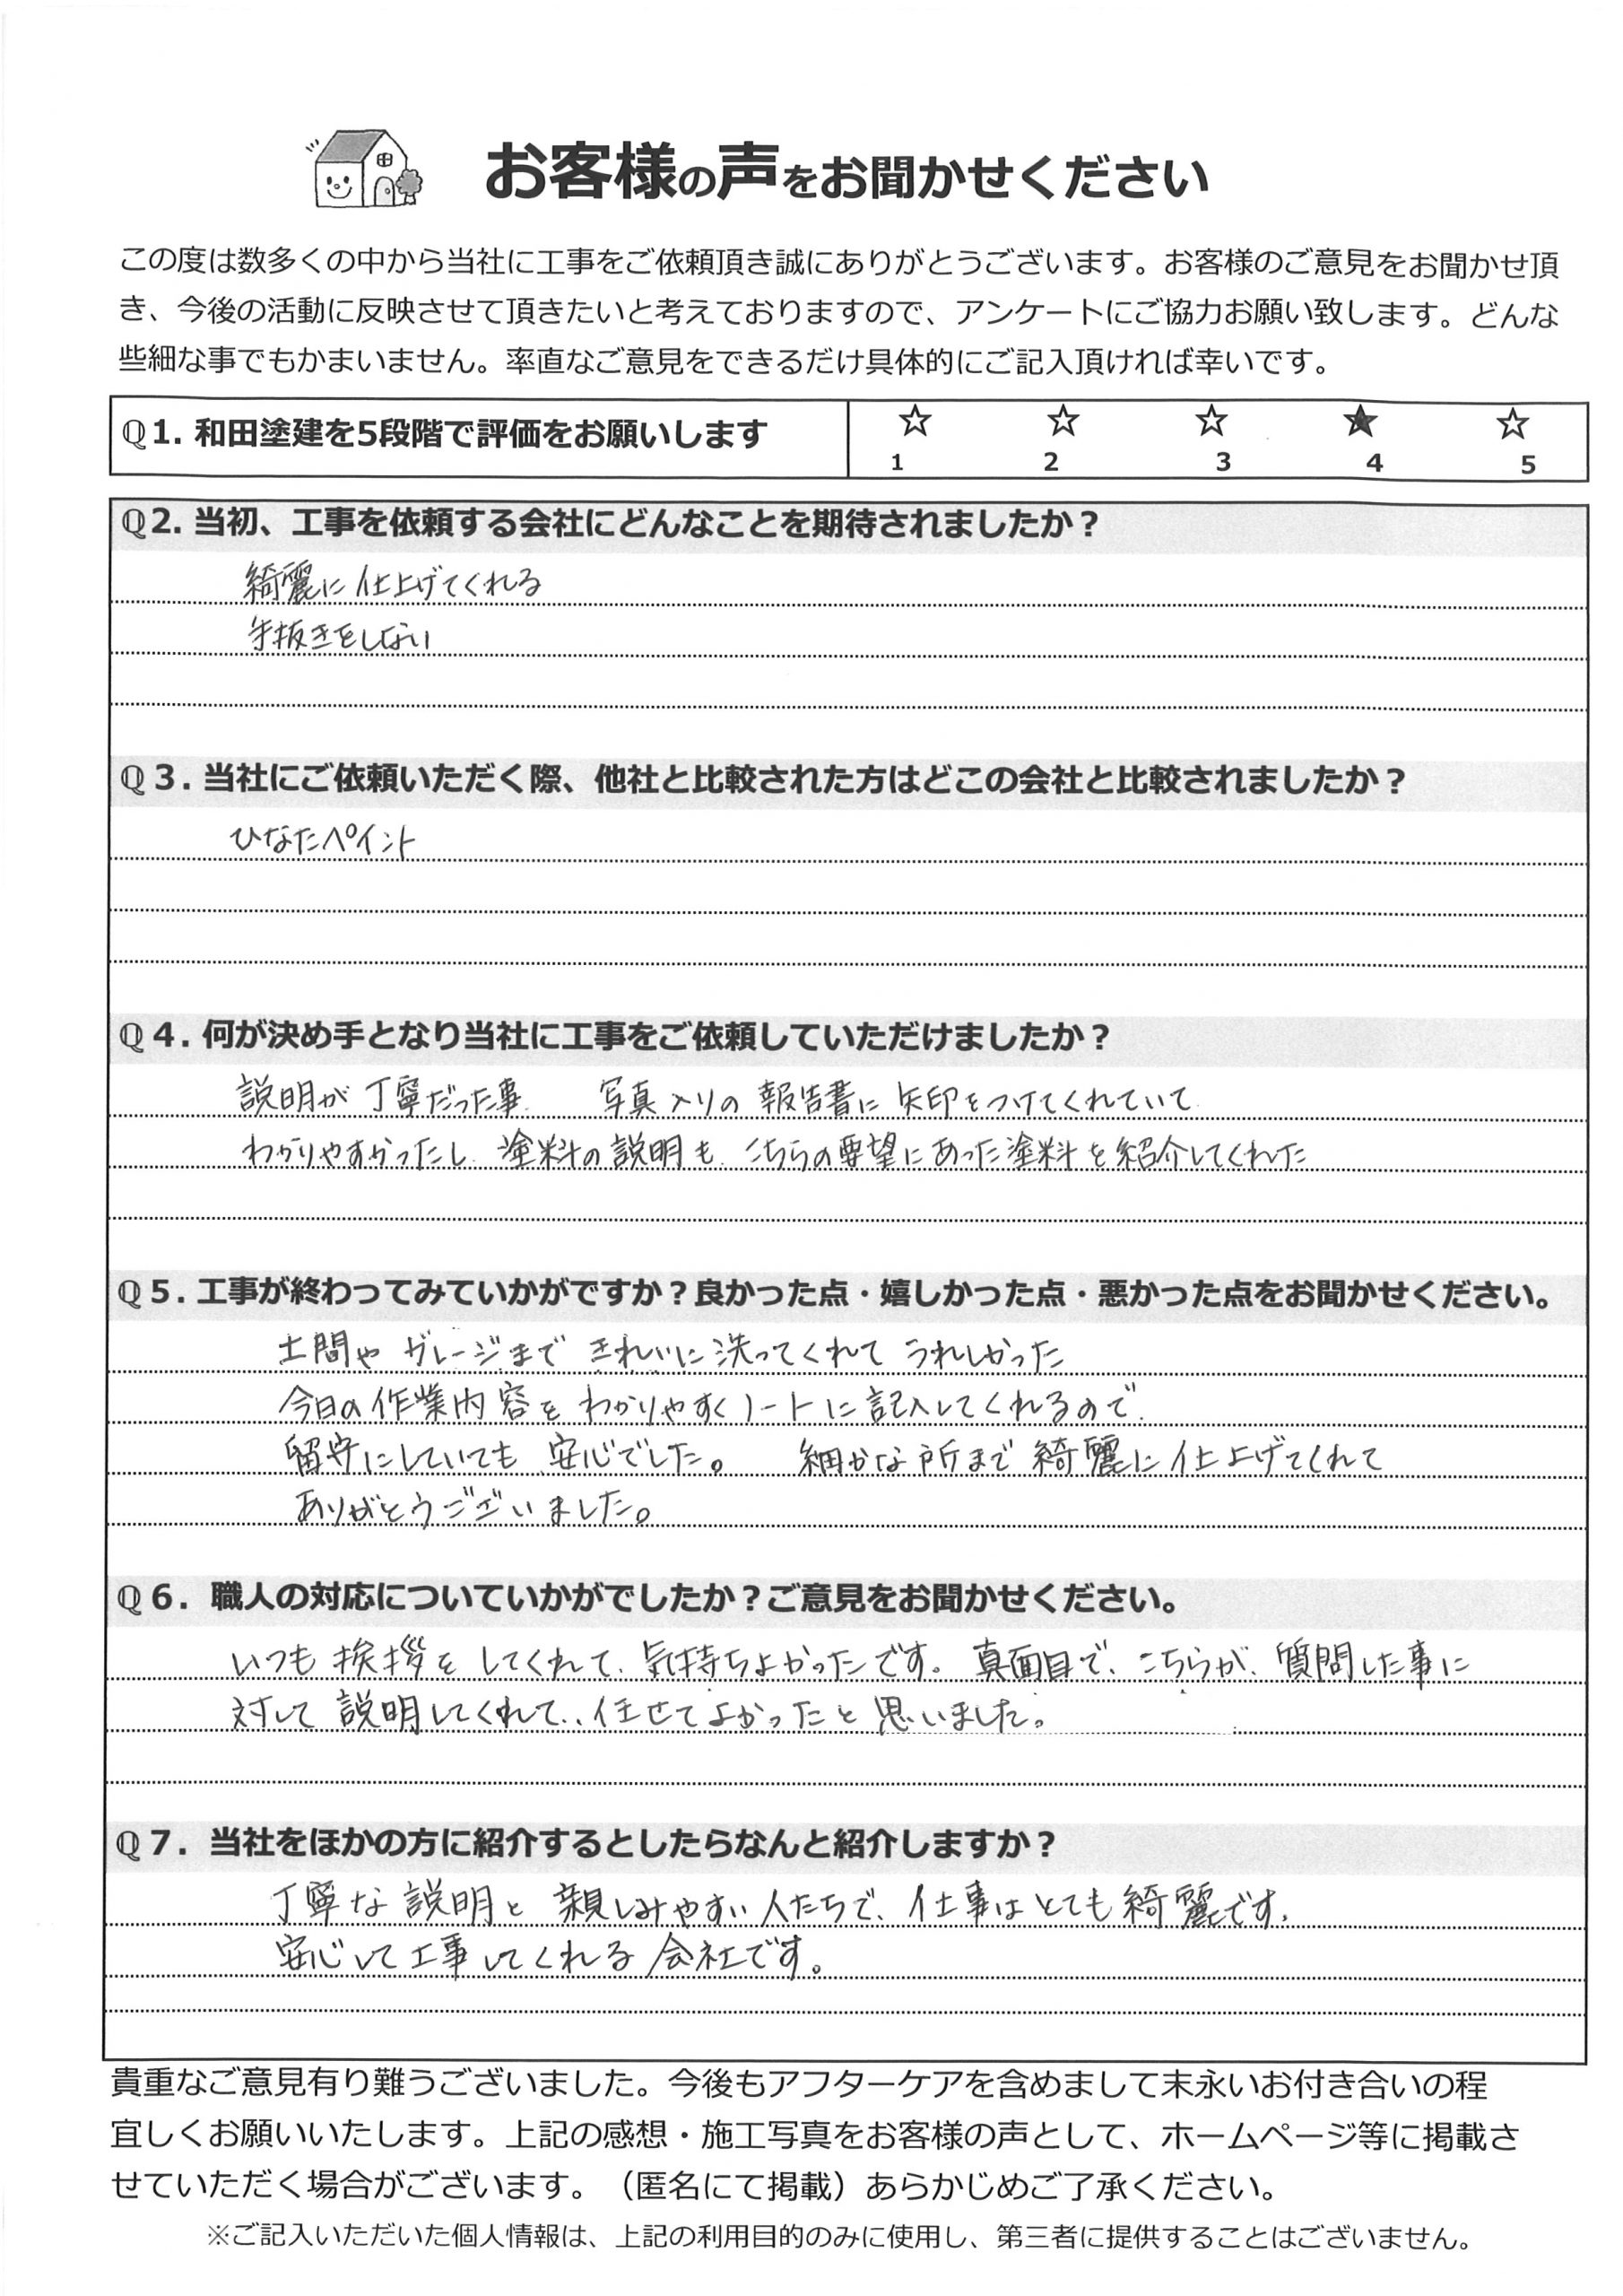 お客様の声をお聞かせください
この度は数多くの中から当社に工事をご依頼頂き誠にありがとうございます。お客様のご意見をお聞かせ頂
き、今後の活動に反映させて頂きたいと考えておりますので、アンケートにご協力お願い致します。どんな
些細な事でもかまいません。率直なご意見をできるだけ具体的にご記入頂ければ幸いです。
Q1. 和田塗建を5段階で評価をお願いします ☆ ☆ ☆ ★ ☆
1 2 3 4 5
Q2. 当初、工事を依頼する会社にどんなことを期待されましたか？
綺麗に仕上げてくれる
手抜きをしない
Q3. 当社にご依頼いただく際、他社と比較された方はどこの会社と比較されましたか？
ひなたペイント
Q4. 何が決め手となり当社に工事をご依頼していただけましたか？
説明が丁寧だった事、 写真入りの報告書に矢印をつけてくれていて
わかりやすかったし、塗料の説明も、こちらの要望にあった塗料を紹介してくれた
Q5. 工事が終わってみていかがですか？良かった点・嬉しかった点・悪かった点をお聞かせください。
土間や ガレージまで きれいに洗ってくれて うれしかった
今日の作業内容を わかりやすくノートに記入してくれるので、
留守にしていても 安心でした。 細かな所まで綺麗に仕上げてくれて
ありがとうございました。
Q6. 職人の対応についていかがでしたか？ご意見をお聞かせください。
いつも挨拶をしてくれて、気持ちよかったです。真面目で、こちらが、質問した事に
対して説明してくれて、任せてよかったと思いました。
Q7. 当社をほかの方に紹介するとしたらなんと紹介しますか？
丁寧な説明と親しみやすい人たちで、仕事はとても綺麗です。
安心して工事してくれる会社です。
貴重なご意見有り難うございました。今後もアフターケアを含めまして末永いお付き合いの程
宜しくお願いいたします。上記の感想・施工写真をお客様の声として、ホームページ等に掲載さ
せていただく場合がございます。（匿名にて掲載）あらかじめご了承ください。
※ご記入いただいた個人情報は、上記の利用目的のみに使用し、第三者に提供することはございません。